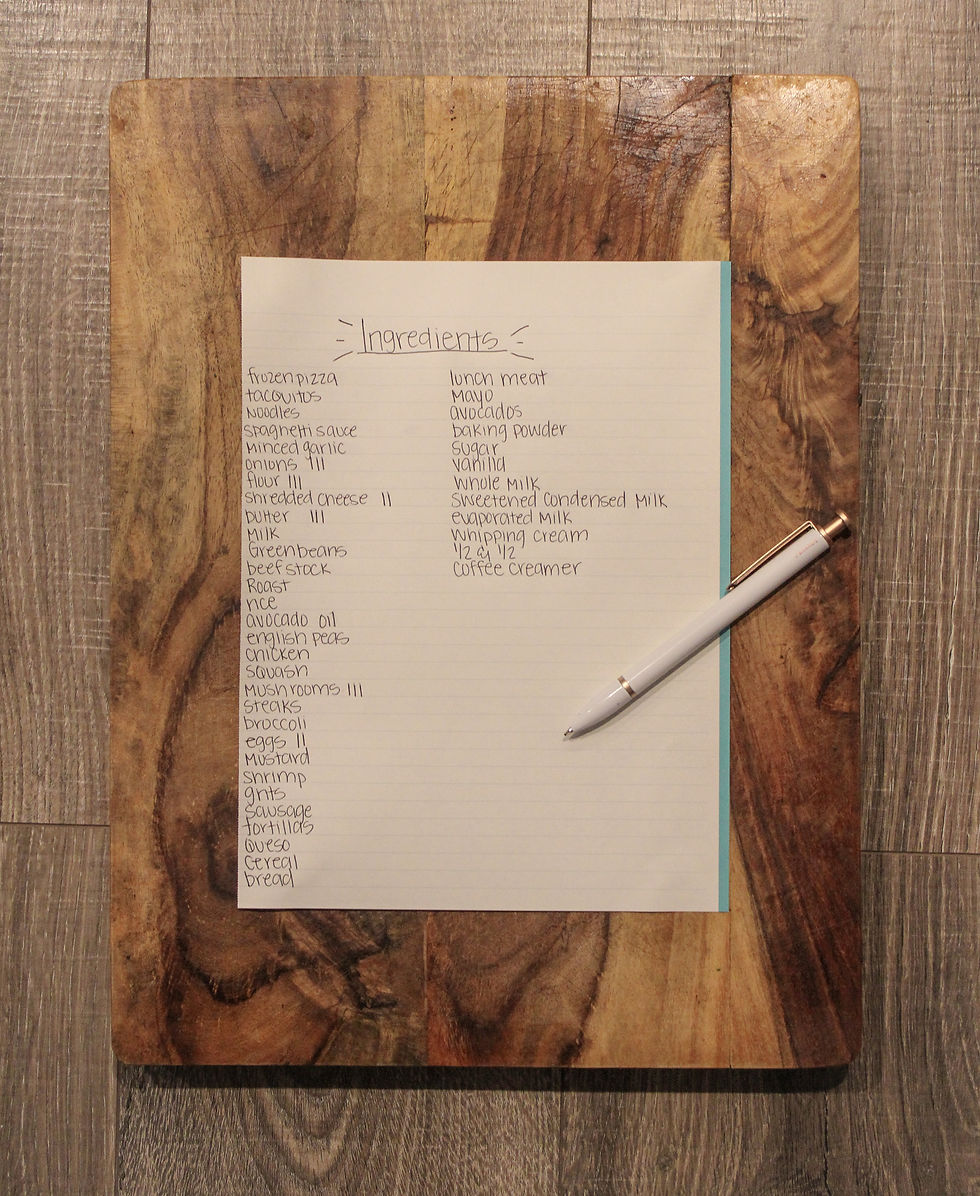 Ingredients
frozen pizza
taquitos
Noodles
spaghetti sauce
Minced garlic
onions III
flour III
shredded cheese II
butter III
Milk
Green beans
beef stock
Roast
rice
avocado oil
english peas
chicken
squash
Mushrooms III
steaks
broccoli
eggs II
Mustard
shrimp
grits
sausage
tortillas
Queso
Cereal
bread
lunch meat
Mayo
avocados
baking powder
sugar
vanilla
whole Milk
Sweetened Condensed Milk
evaporated Milk
whipping cream
1/2 & 1/2
Coffee creamer